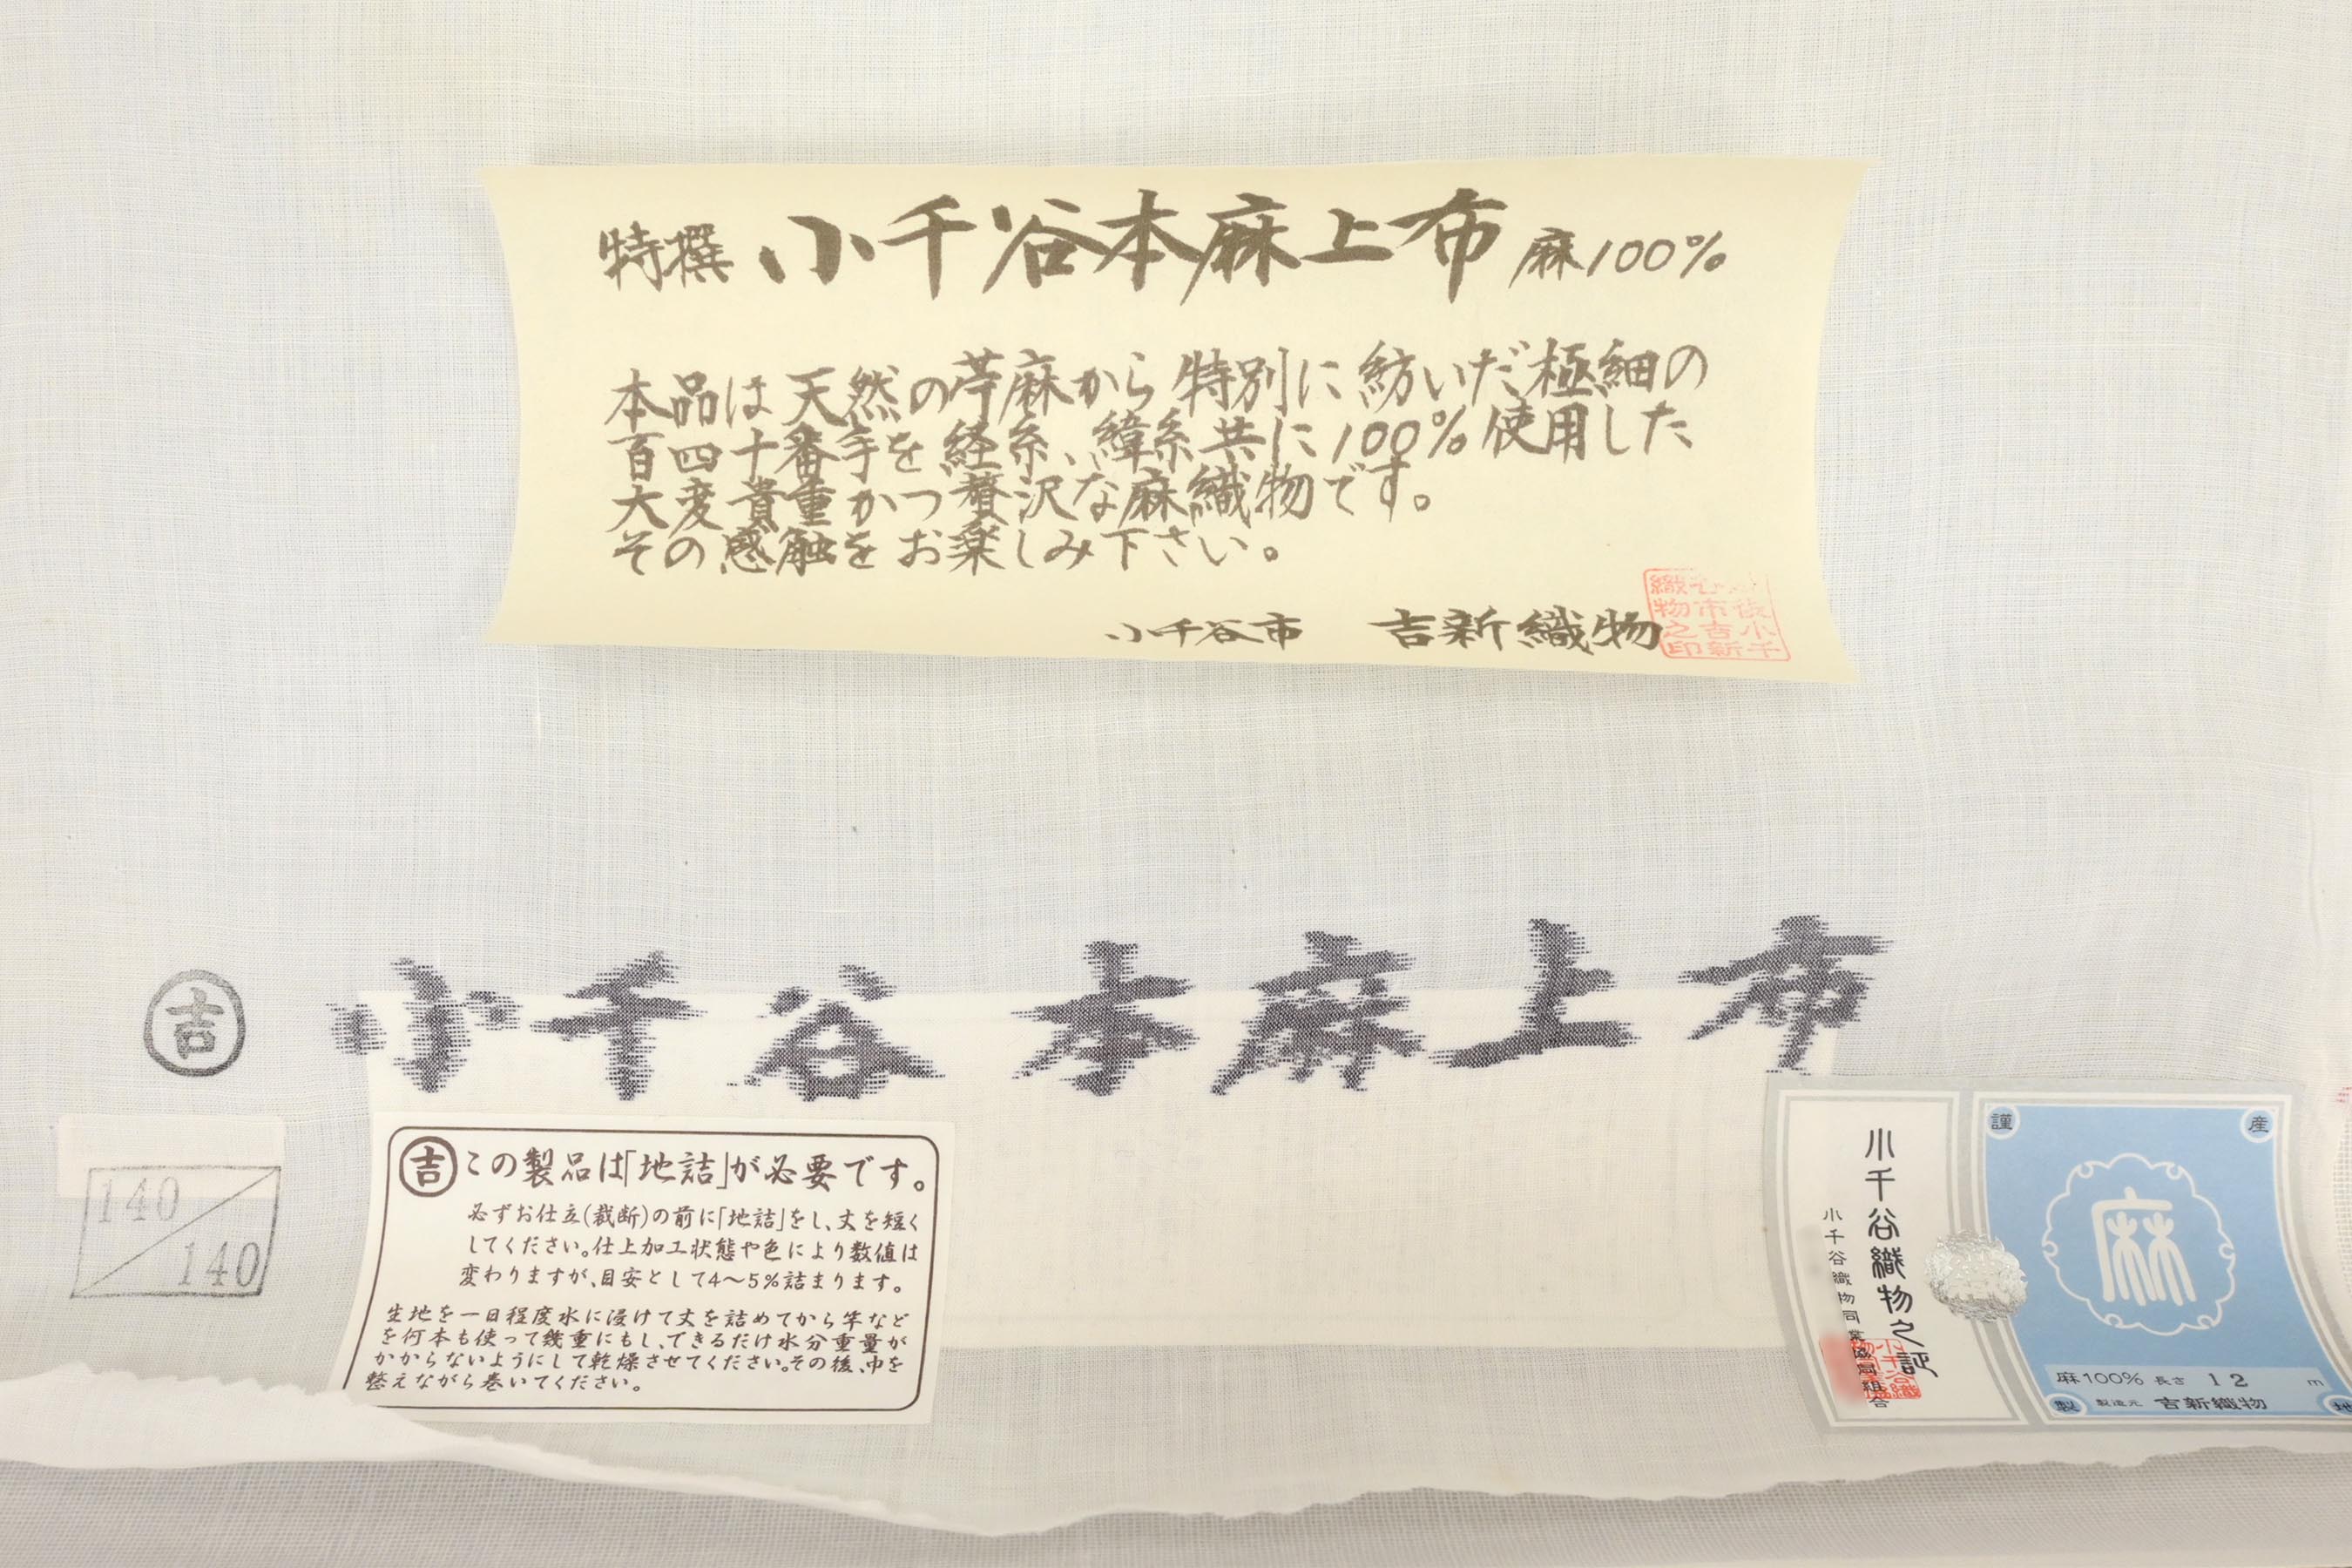 特撰 小千谷本麻上布 麻100%
本品は天然の苧麻から特別に紡いだ極細の
百四十番手を経糸、緯糸共に100%使用した
大変貴重かつ贅沢な麻織物です。
その感触をお楽しみ下さい。
小千谷市 吉新織物
吉
小千谷 本麻上布
140
140
吉 この製品は「地詰」が必要です。
必ずお仕立(裁断)の前に「地詰」をし、丈を短く
してください。仕上加工状態や色により数値は
変わりますが、目安として4〜5%詰まります。
生地を一日程度水に浸けて丈を詰めてから竿など
を何本も使って幾重にもし、できるだけ水分重量が
かからないようにして乾燥させてください。その後、巾を
整えながら巻いてください。
小千谷織物之証
小千谷織物同業協同組合
謹 産
麻
麻100% 長さ 12 m
製 製造元 吉新織物 地